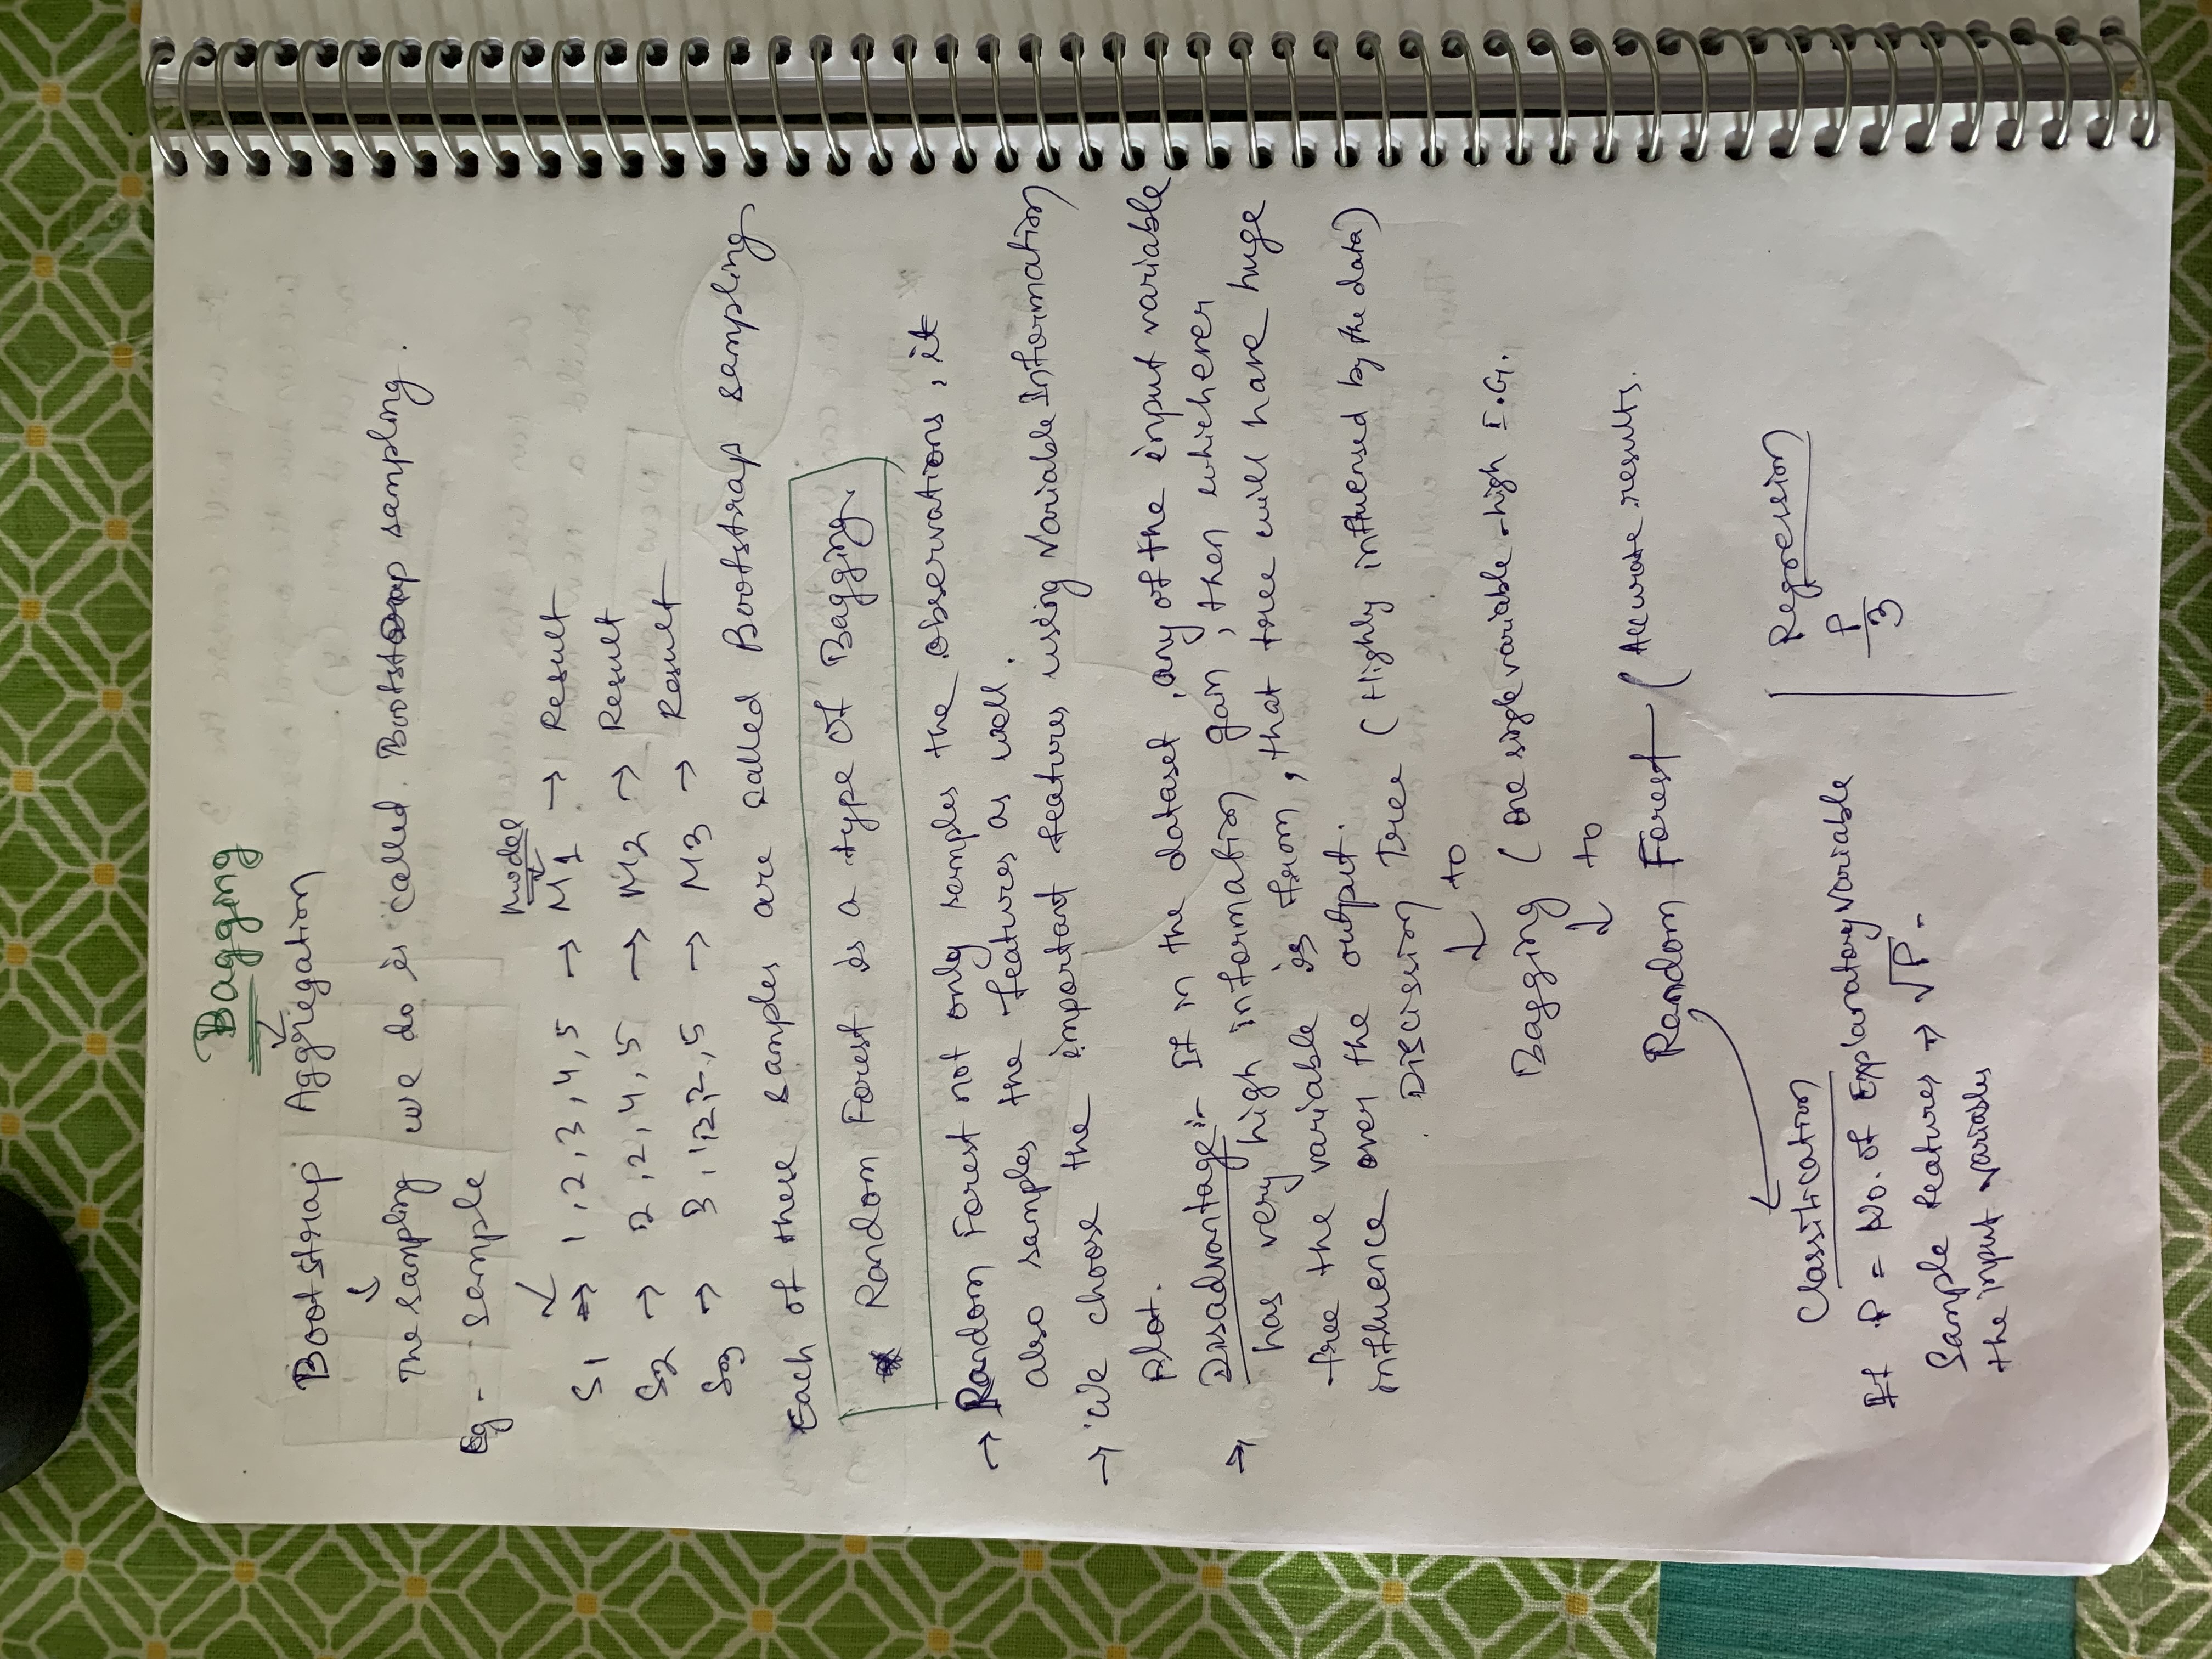 Bagging
Bootstrap Aggregation
The sampling we do is called Bootstrap sampling.
Eg - sample
Model
S1 → 1, 2, 3, 4, 5 → M1 → Result
S2 → 2, 2, 4, 5 → M2 → Result
S3 → 3, 1, 2, 2, 5 → M3 → Result
Each of these samples are called Bootstrap sampling
* Random Forest is a type of Bagging
→ Random Forest not only samples the observations, it
also samples the features as well.
→ We choose the important features using Variable Information
plot.
→ Disadvantage :- If in the dataset, any of the input variable
has very high information gain, then whichever
tree the variable is from, that tree will have huge
influence over the output.
Discission Tree (Highly influensed by the data)
↓ to
Bagging (One single variable - high I.G.
↓ to
Random Forest (Accurate results.
Classification
If P = No. of Explanatory Variable
Sample features → √P -
the input variables
Regression
P
3